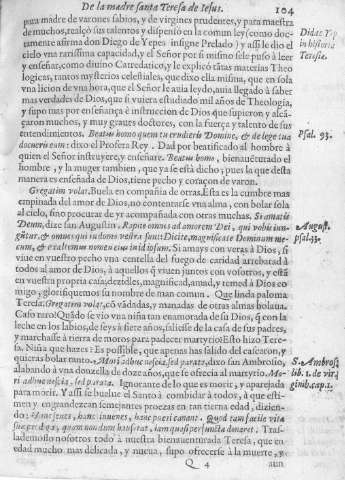 De la madre santa Teresa de Iesus. 104
para madre de varones sabios, y de virgines prudentes, y para maestra
de muchos, realçó sus talentos y dispensó en la comun ley (como doc-
tamente afirma don Diego de Yepes insigne Prelado) y assi le dio el
cielo vna rarissima capacidad, y el Señor por si mismo se le puso à leer
y enseñar, como diuino Catredatico, y le explicó tãtas materias Theo
logicas, tantos mysterios celestiales, que dixo ella misma, que en sola
vna licion de vna hora, que el Señor le auia leydo, auia llegado à saber
mas verdades de Dios, que si vuiera estudiado mil años de Theologia,
y supo mas por enseñança è instruccion de Dios que supieron y alcã-
çaron muchos, y muy graues doctores, con la fuerça y talento de sus
entendimientos. Beatus homo quem tu erudieris Domine, & de lege tua
docueris eum: dixo el Profeta Rey. Dad por beatificado al hombre à
quien el Señor instruyere, y enseñare. Beatus homo, bienauẽturado el
hombre, y la muger tambien, que ya se està dicho; pues la que desta
manera es enseñada de Dios, tiene pecho y coraçon de varon.
Gregatim volat. Buela en compañia de otras. Esta es la cumbre mas
empinada del amor de Dios, no contentarse vna alma, con bolar sola
al cielo, sino procurar de yr acompañada con otras muchas. Si amatis
Deum, dize san Augustin, Rapite omnes ad amorem Dei, qui vobis iun-
gütur, & omnes qui in domo vestra sunt: Dicite, magnificate Dominum me-
cum, & exaltemus nomen eius in id ipsum. Si amays con veras à Dios, si
viue en vuestro pecho vna centella del fuego de caridad arrebatad à
todos al amor de Dios, à aquellos q̃ viuen juntos con vosotros, y està
en vuestra propria casa; dezildes, magnificad, amad, y temed à Dios en
migo y glorifiquemos su nombre de man comun. Que linda paloma
Teresa: Gregatim volat, cõ vãdadas, y manadas de otras almas bolaua.
Caso raro! Quãdo se vio vna niña tan enamorada de su Dios, q̃ con la
leche en los labios, de seys à siete años, saliesse de la casa de sus padres,
y marchasse à tierra de moros para padecer martyrio? Esto hizo Tere-
sa. Niña que hazes? Es possible, que apenas has salido del cascaron, y
quieras bolar tanto. Mori adhuc nescia, sed parata, dixo san Ambrosio,
alabando à vna donzella de doze años, que se ofrecia al martyrio. Mo-
ri adhuc nescia, sed parata. Ignorante de lo que es morir, y aparejada
para morir. Y assi se buelue el Santo à combidar à todos, à que esti-
men y engrandezcan semejantes proezas en tan tierna edad, dizien-
do: Hanc senes, hanc iuuenes, hanc pueri canant.
lademoslo nosotros todo à nuestra bienauenturada Teresa, que en
edad mucho mas delicada, y nueua, supo ofrecerse à la muerte, y
Q 4 aun
in historia
Teresiæ.
Psal. 93.
August.
S. Ambros.
lib. 1. de vir
ginib. cap. 1.